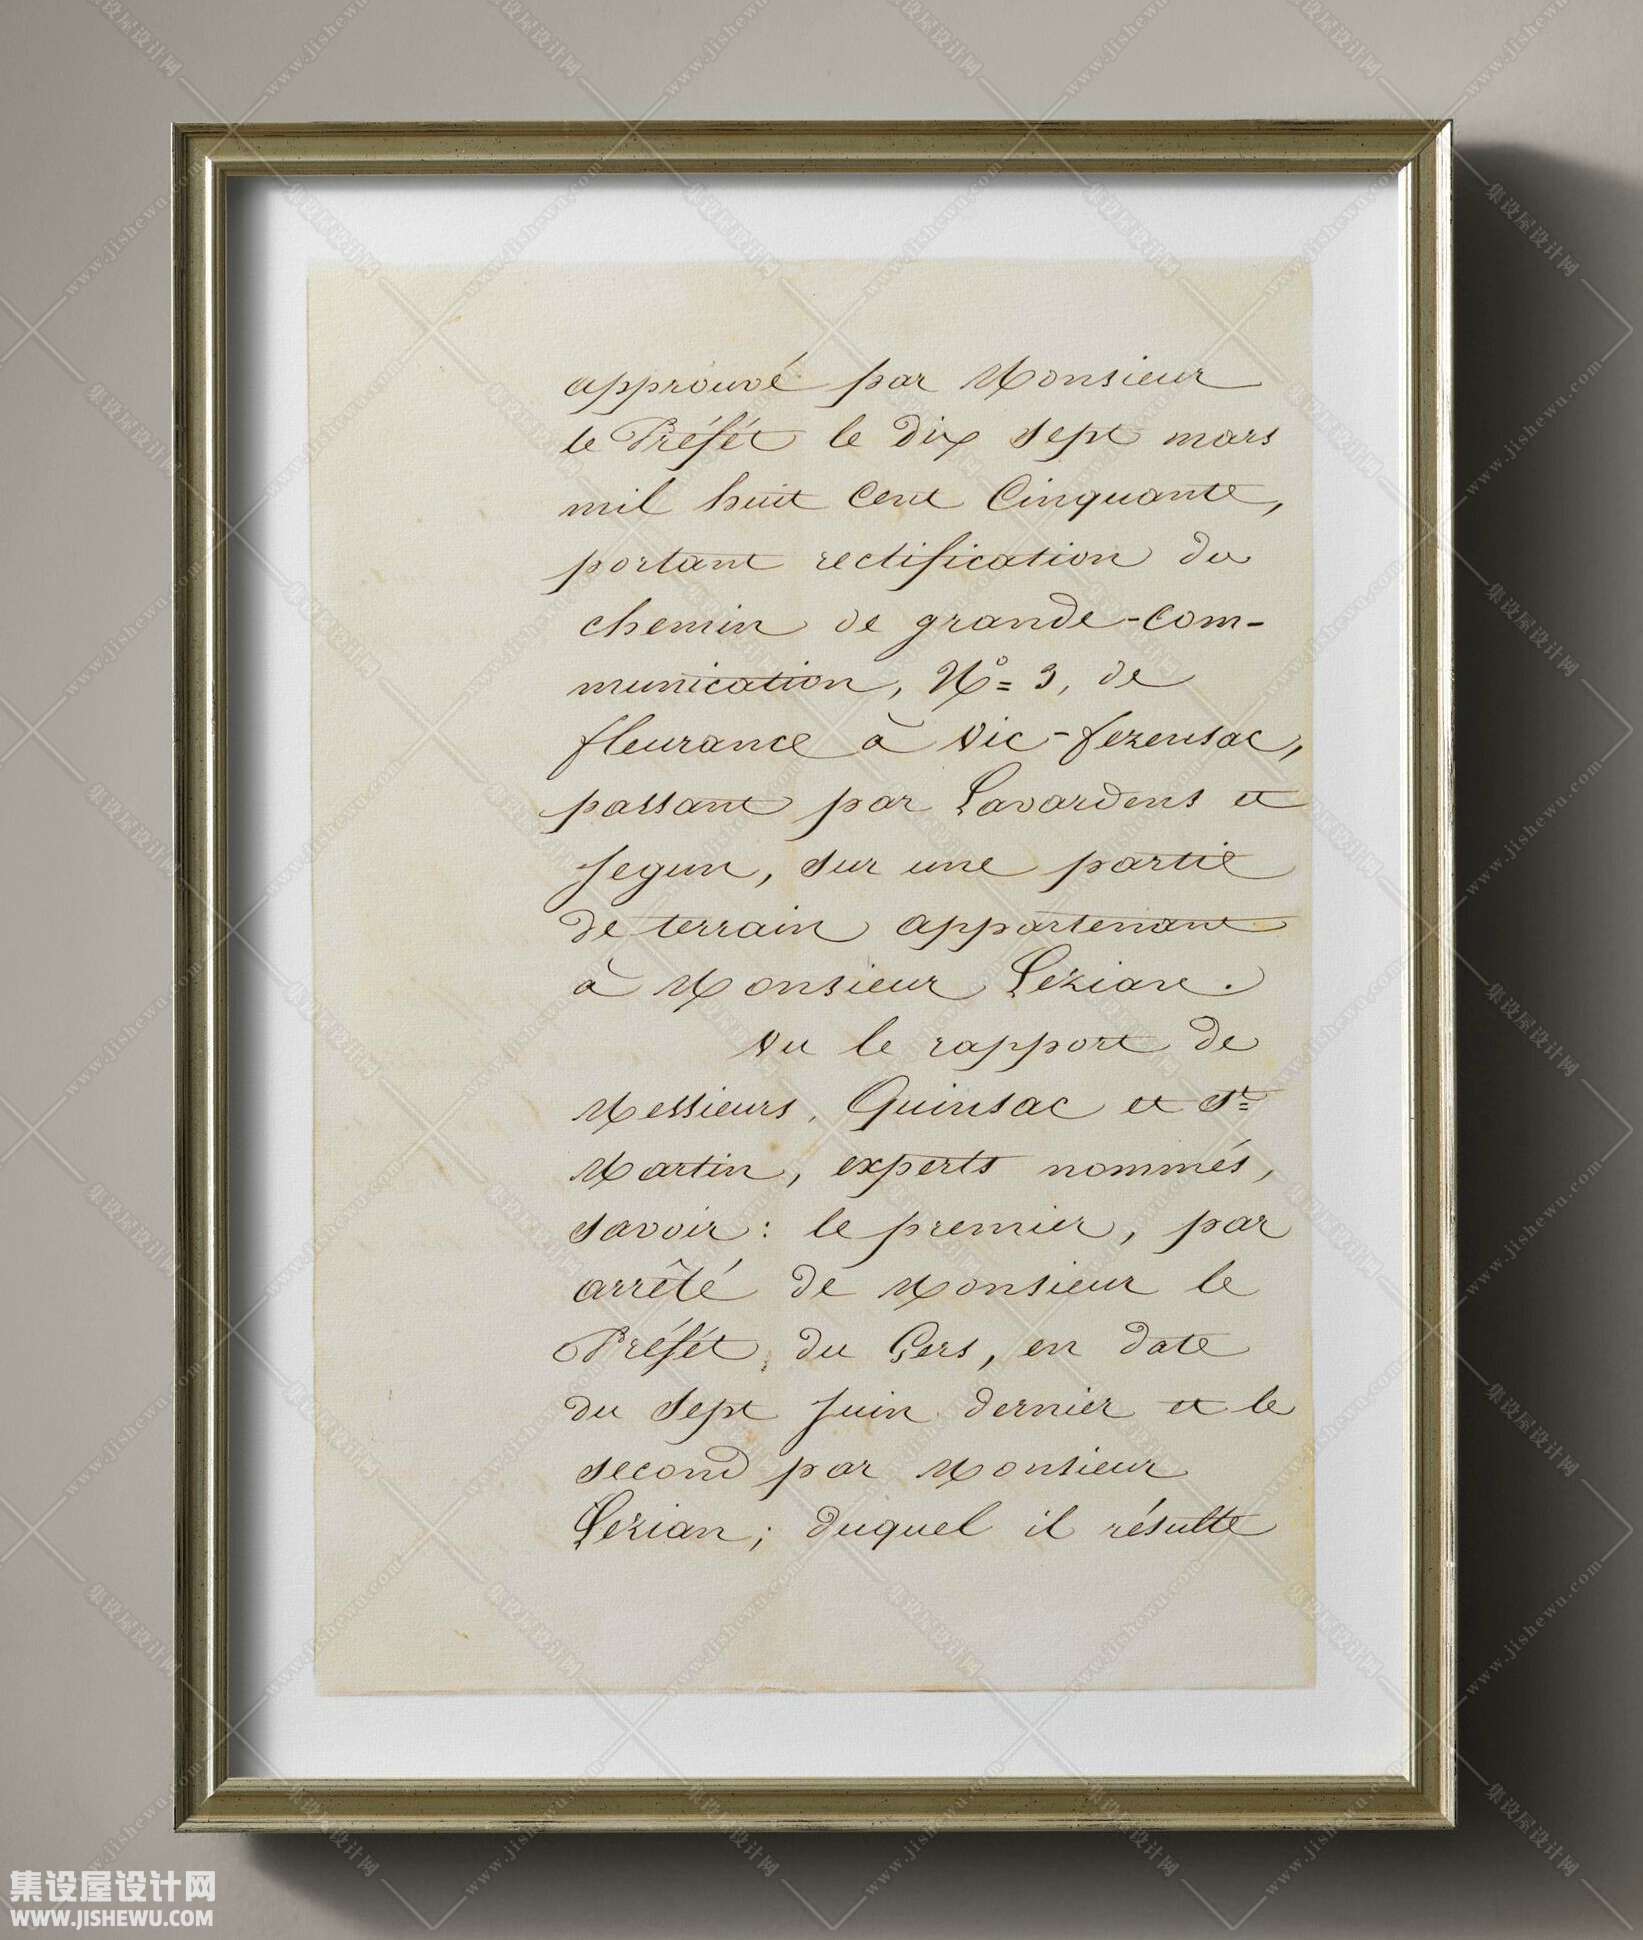 approuvé par Monsieur
le Préfét le Dix sept mars
mil huit Cent Cinquante,
portant rectification du
chemin de grande-com-
munication, Nº= 3, de
fleurance à Vic-fezensac,
passant par Lavardens et
Jegun, sur une partie
de terrain appartenant
à Monsieur Lezian.
Vu le rapport de
Messieurs, Quinsac et St=
Martin, experts nommés,
savoir: le premier, par
arrêté de Monsieur le
Préfét, du Gers, en date
du sept Juin dernier et le
second par Monsieur
Lezian; duquel il résulte
集设屋设计网
WWW.JISHEWU.COM